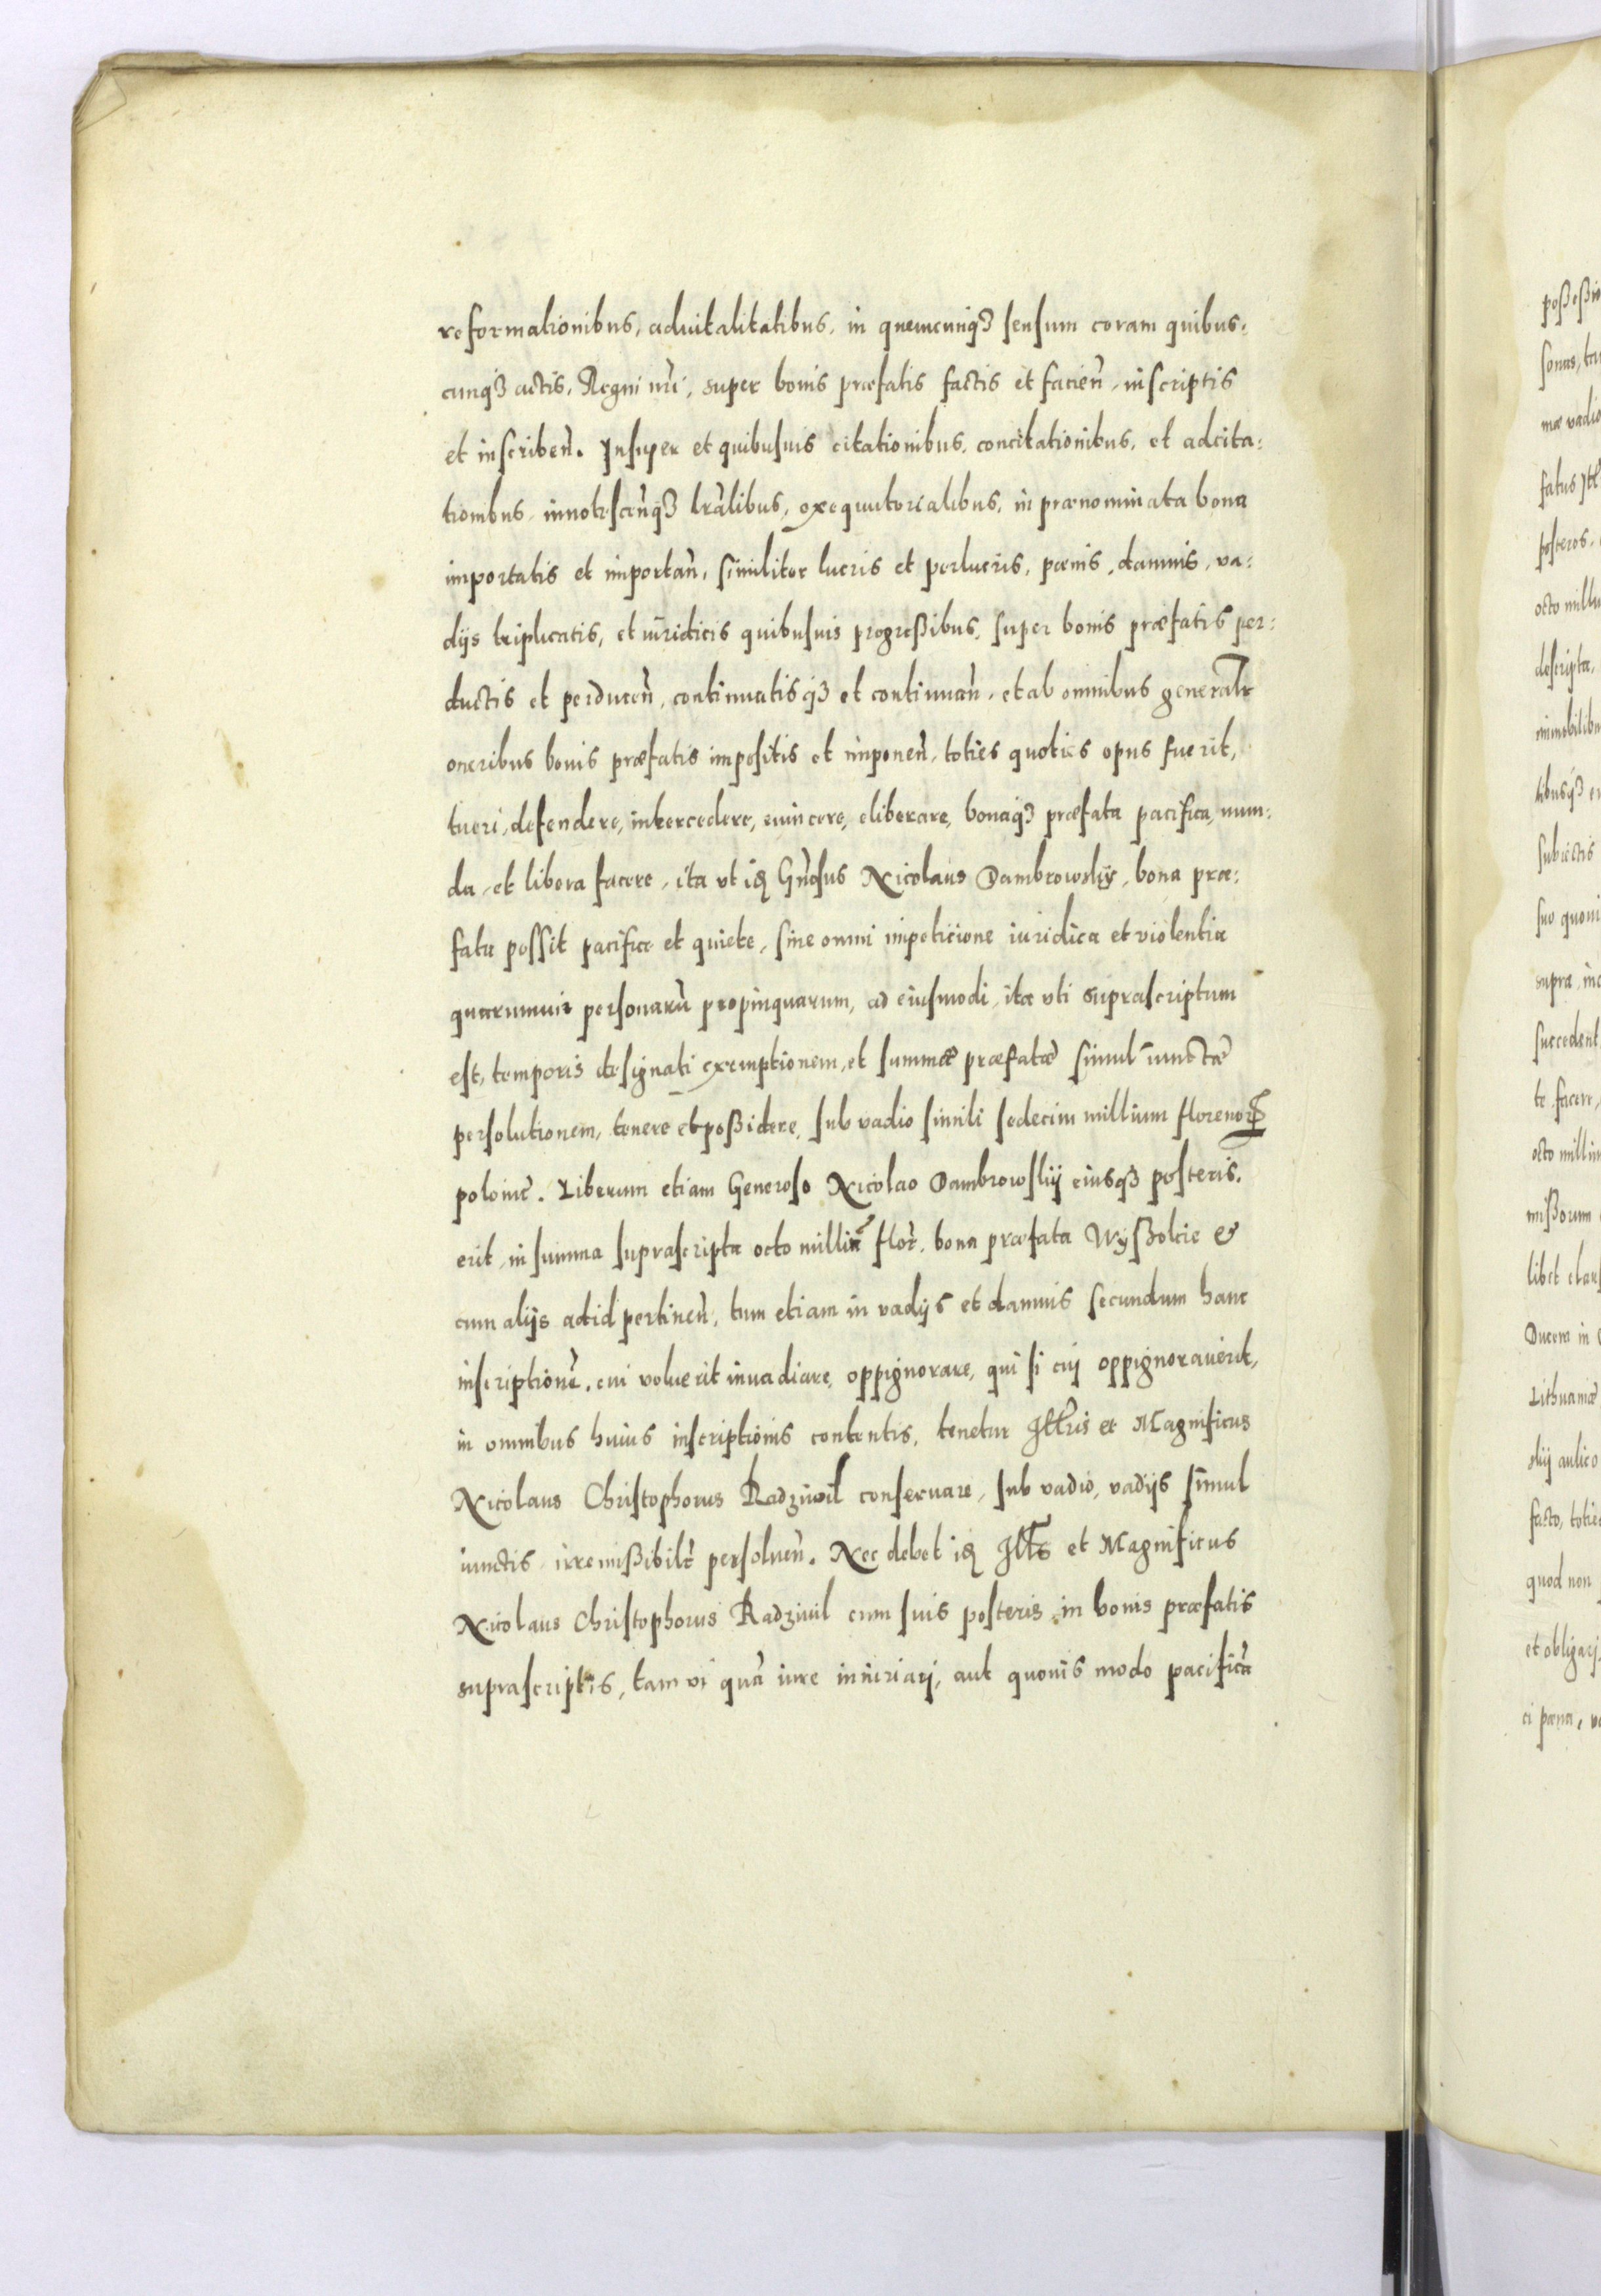 reformationibus, aduitalitatibus, in quemcunq3 sensum coram quibus:
cunq3 actis, Regni nri, super bonis præfatis factis et facien̄, inscriptis
et inscriben̄. Insuper et quibusuis citationibus, concitationibus, et adcita:
tionibus, innotescen̄q3 lralibus, exequutorialibus, in prænominata bona
importatis et importan̄, similiter lucris et perlucris, pœnis, damnis, va:
dijs triplicatis, et iuridicis quibusuis progreßibus, super bonis præfatis per:
ductis et perducen̄, continuatisq3 et continuan̄, et ab omnibus generalr
oneribus bonis præfatis impositis et imponen̄, toties quoties opus fuerit,
tueri, defendere, intercedere, euincere, eliberare, bonaq3 præfata pacifica, mun:
da, et libera facere, ita ut is Gnosus Nicolaus Dambrowskij, bona præ:
fata possit pacifice et quiete, sine omni impeticione iuridica et violentia
quarumuis personarū propinquarum, ad eiusmodi, ita uti suprascriptum
est, temporis designati exemptionem, et summæ præfatæ simul iunctæ
persolutionem, tenere et poßidere, sub vadio simili sedecim millium florenorꝝ
poloniē. Liberum etiam Generoso Nicolao Dambrowskij eiusq3 posteris,
erit, in summa suprascripta octo milliū flor, bona præfata Wyßolcie &
cum alijs ad id pertinen̄, tum etiam in vadijs et damnis secundum hanc
inscriptionē, cui voluerit inuadiare, oppignorare, qui si cuj oppignorauerit,
in omnibus huius inscriptionis contentis, tenetur Illris et Magnificus
Nicolaus Christophorus Radziwil conseruare, sub vadio, vadijs simul
iunctis irremißibilr persoluen̄. Nec debet is Ills et Magnificus
Nicolaus Christophorus Radziuil cum suis posteris in bonis præfatis
suprascriptis, tam vi quā iure iniuriarj, aut quouis modo pacificā